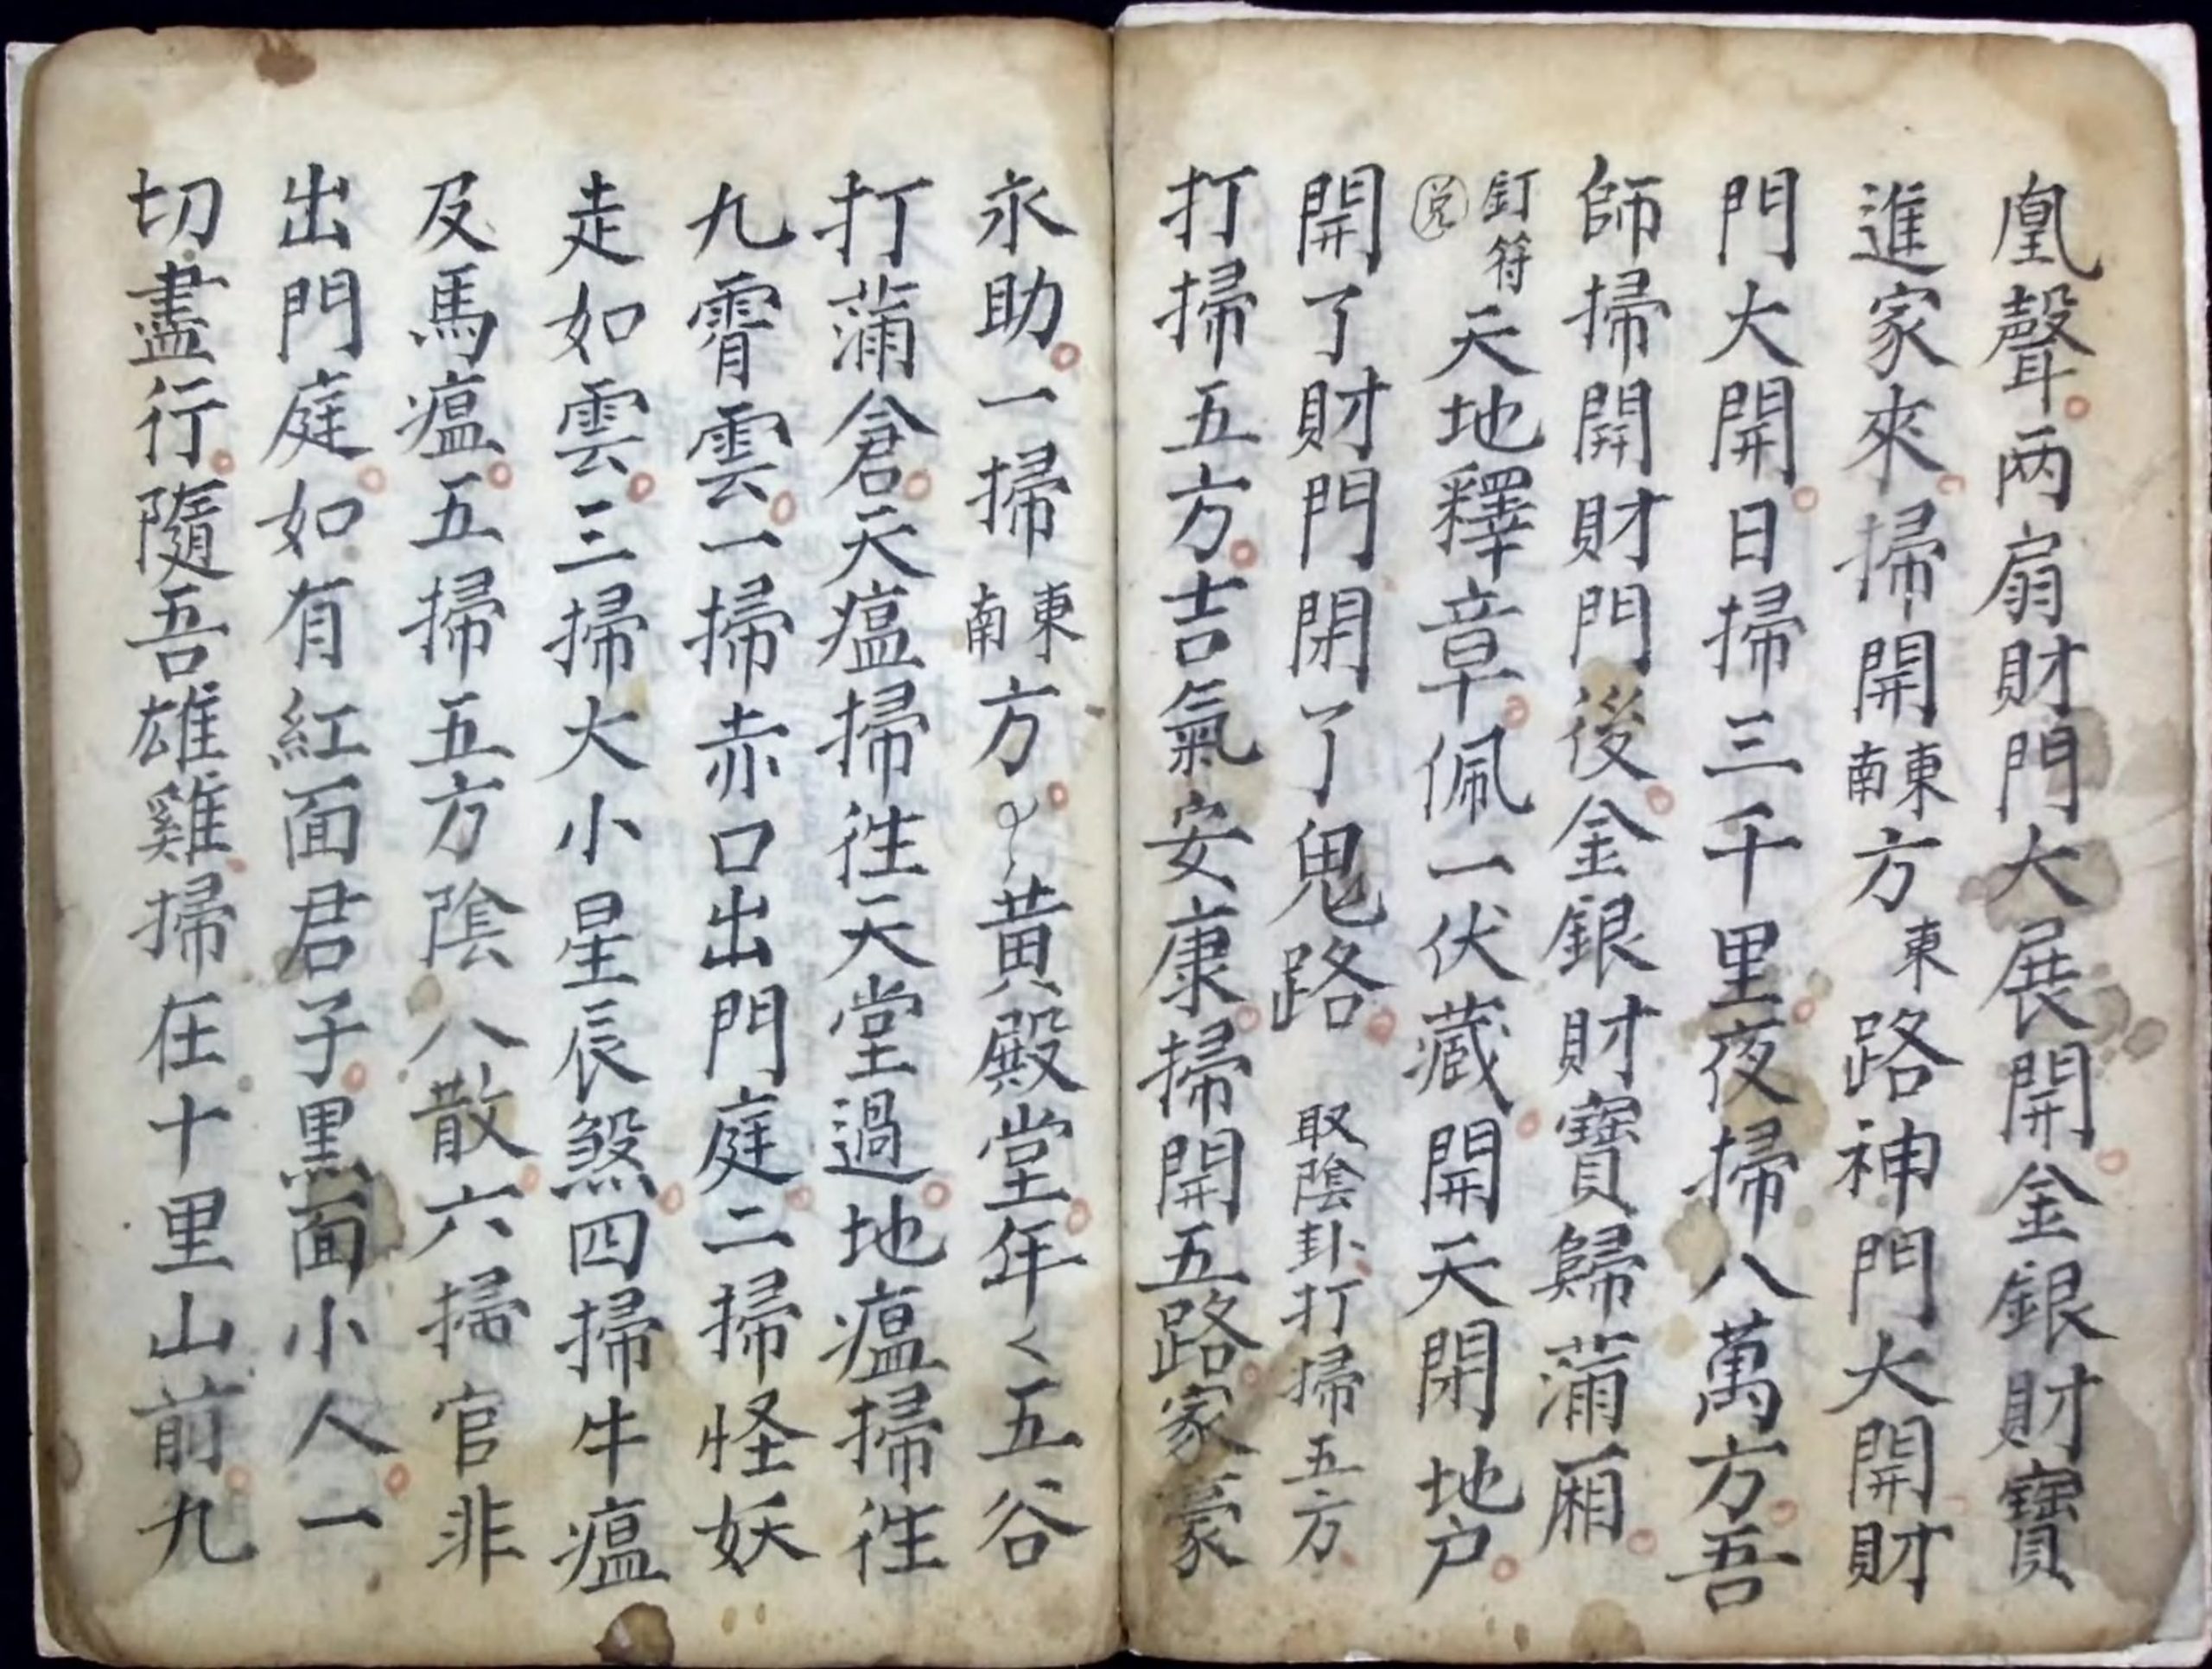 凰聲兩扇財門大展開金銀財寶
進家來掃開東南方東路神門大開財
門大開日掃三千里夜掃八萬方吾
師掃開財門後金銀財寶歸蒲廂
釘符
天地釋章佩一伏藏開天閉地户
開了財門閉了鬼路取陰卦打掃五方
打掃五方吉氣安康掃開五路家豪
永助一掃東南方黃殿堂年く五谷
打蒲倉天瘟掃徃天堂過地瘟掃徃
九霄雲一掃赤口出門庭二掃怪妖
走如雲三掃大小星辰煞四掃牛瘟
及馬瘟五掃五方陰八散六掃官非
出門庭如有紅面君子黑面小人一
切盡行隨吾雄雞掃在十里山前九